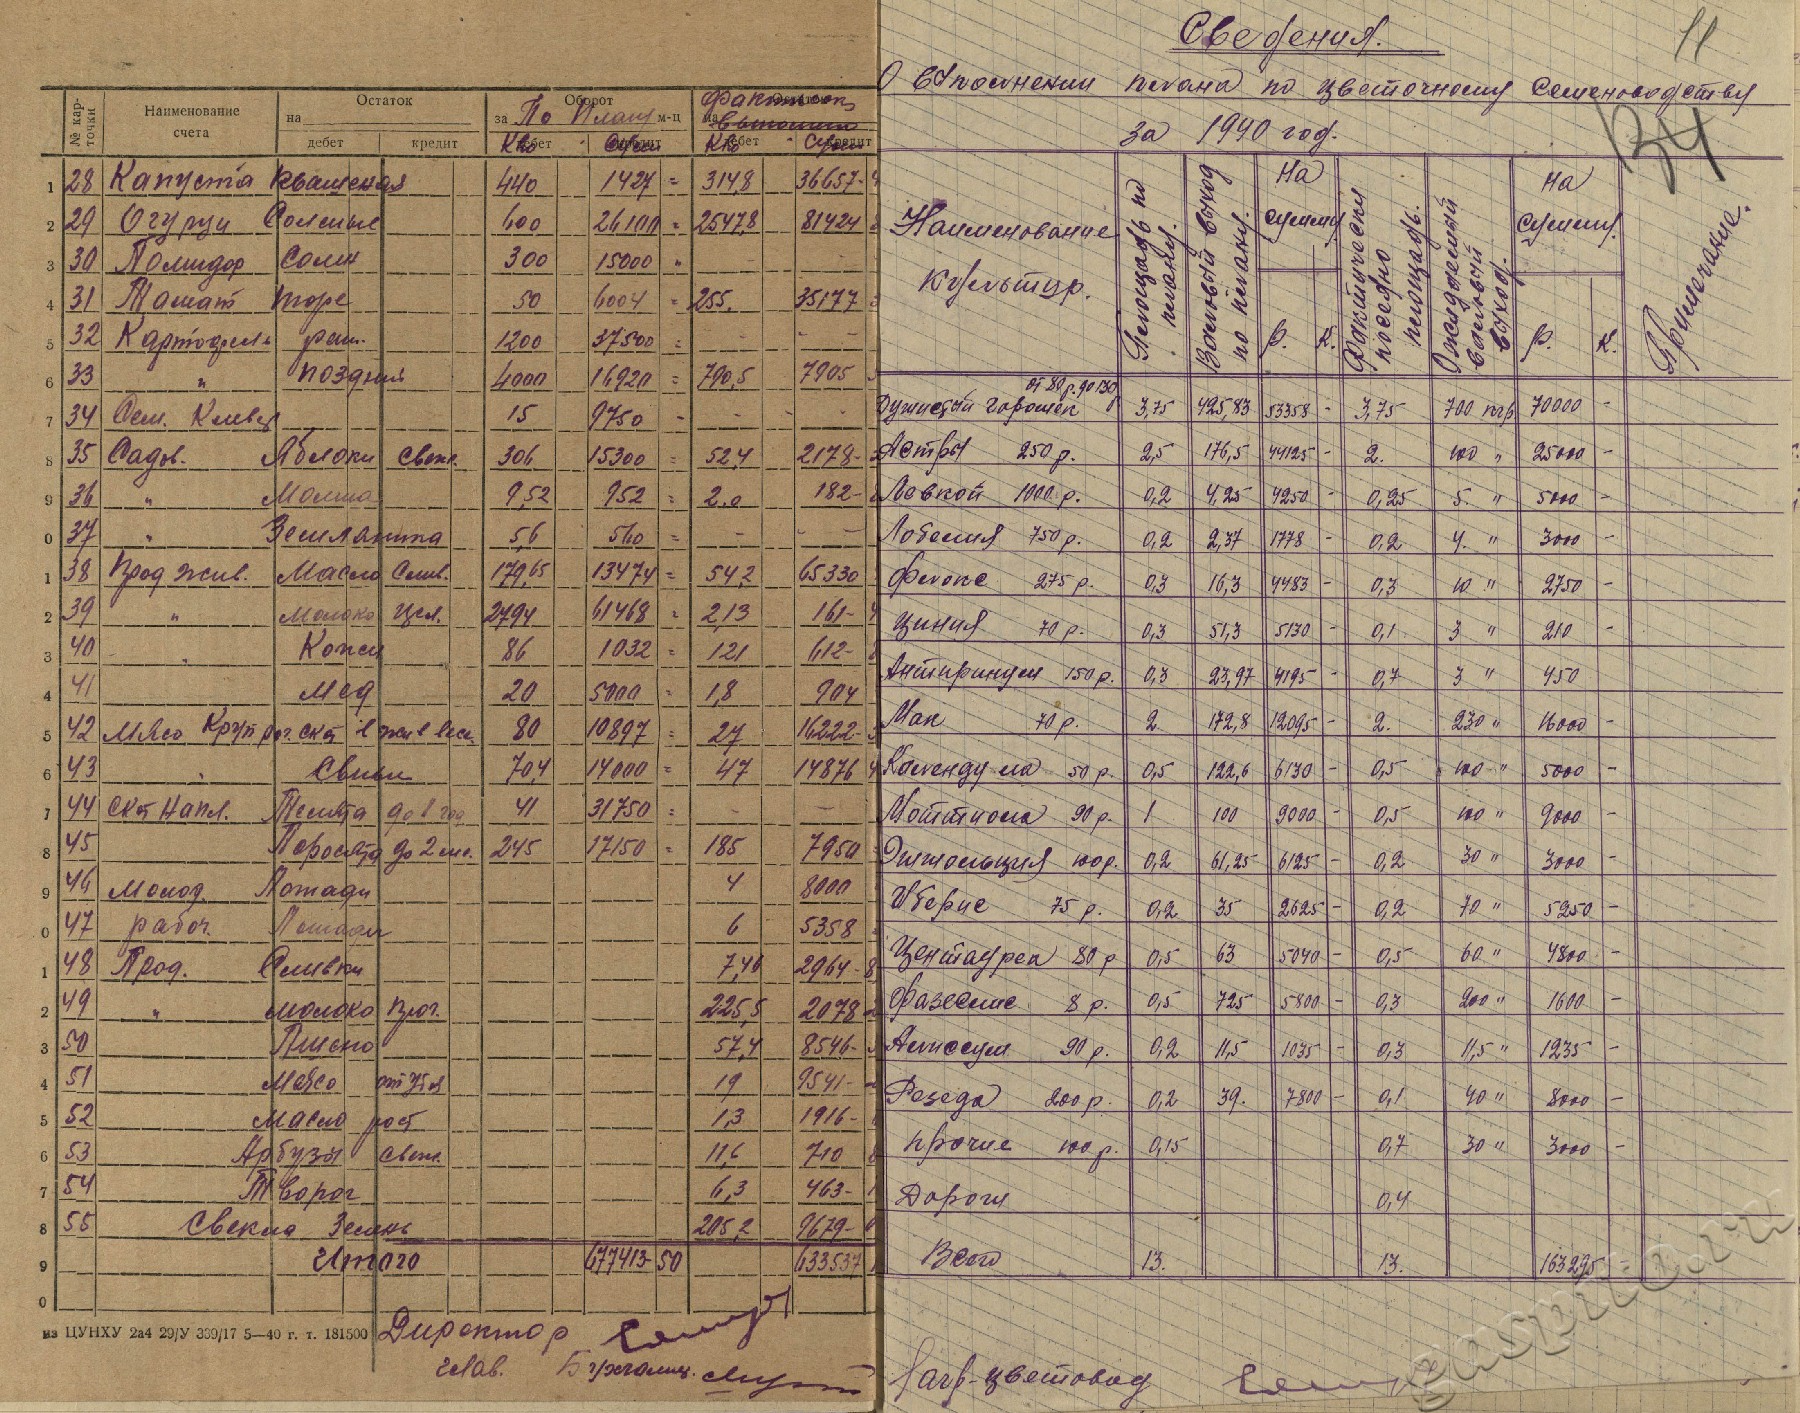 № карточки Наименование счета Остаток Оборот Остаток
на за По Плану м-ц на Фактическ. выполнен
дебет кредит дебет кредит дебет кредит
Кво Сумм Кво Сумм
1 28 Капуста квашеная 440 1427 = 314,8 36657-
2 29 Огурцы Соленые 600 26100 = 2547,8 81424
3 30 Помидор солен 300 15000 " - -
4 31 Томат пюре 50 6004 = 255. 35177
5 32 Картофель ран. 1200 37500 = - -
6 33 " поздний 4000 16920 = 790,5 7905
7 34 Сем. Клевер 15 9750 - - -
8 35 Садов. Яблоки свеж. 306 15300 = 52,4 2178-
9 36 " Малина 9,52 952 = 2.0 182-
0 37 " Земляника 5,6 560 = - -
1 38 Прод жив. Масло Слив. 179,65 13474 = 54,2 65330
2 39 " Молоко цел. 2794 61468 = 2,13 161-
3 40 " Кожи 86 1032 = 121 612-
4 41 Мед 20 5000 - 1,8 904
5 42 Мясо Круп рог. скт в жив весе 80 10897 = 27 16222-
6 43 " Свиньи 70,4 14000 = 47 14876
7 44 скт Напл. Телята до 1 год 41 31750 = - -
8 45 Поросята до 2 мс. 245 17150 = 185 7950
9 46 Молод. Лошади 4 8000
0 47 рабоч. Лошади 6 5358
1 48 Прод. Сливки 7,46 2964-8
2 49 " Молоко прог. 225,5 2078
3 50 Пшено 57,4 8546-
4 51 Мясо 19 9541-
5 52 Масло рост 1,3 1916-
6 53 Арбузы свеж. 11,6 710
7 54 Творог 6,3 463-
8 55 Свекла Зелень 205,2 9679-
9 Итого 677413-50 633537
0
из ЦУНХУ 2а4 29/У 339/17 5—40 г. т. 181500 Директор
Глав. Бухгалтер
11
Сведения.
О выполнении плана по цветочному семеноводству
за 1940 год.
Наименование культур.
Площадь по плану.
Валовый выход по плану.
На сумму
р. к.
Фактически посеяно площадь.
Ожидаемый валовый выход.
На сумму.
р. к.
Примечание.
от 80 р. до 130
Душистый горошек 3,75 425,83 53358 - 3,75 700 кгр 70000 -
Астры 250 р. 2,5 176,5 44125 - 2. 100 " 25000 -
Левкой 1000 р. 0,2 4,25 4250 - 0,25 5. " 5000 -
Лобелия 750 р. 0,2 2,37 1778 - 0,2 4. " 3000 -
Флокс 275 р. 0,3 16,3 4483 - 0,3 10 " 2750 -
Циния 70 р. 0,3 51,3 5130 - 0,1 3 " 210 -
Антиринум 150 р. 0,3 23,97 4195 - 0,7 3 " 450
Мак 70 р. 2 172,8 12095 - 2. 230 " 16000 -
Календула 50 р. 0,5 122,6 6130 - 0,5 100 " 5000 -
Маттиола 90 р. 1 100 9000 - 0,5 100 " 9000 -
Эшшольция 100р. 0,2 61,25 6125 - 0,2 30 " 3000 -
Иберис 75 р. 0,2 35 2625 - 0,2 70 " 5250 -
Центаурея 80 р 0,5 63 5040 - 0,5 60 " 4800 -
Фазелис 8 р. 0,5 725 5800 - 0,3 200 " 1600 -
Алиссум 90 р. 0,2 11,5 1035 - 0,3 11,5 " 1235 -
Резеда 200 р. 0,2 39. 7800 - 0,1 40 " 8000 -
прочие 100 р. 0,15 0,7 30 " 3000 -
Дороги 0,4
Всего 13. 13. 163295 -
агр-цветовод
gaspito.ru